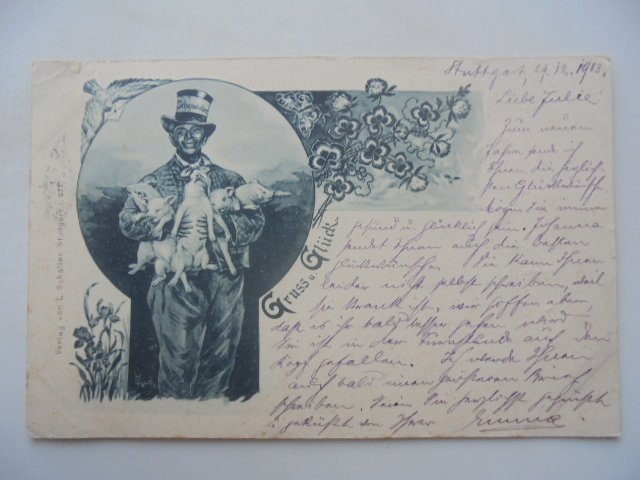 Stuttgart, 29.12.1913.
Liebe Julie!
Zum neuen
Jahre sende ich
Ihnen die herzlich-
sten Glückwünsche
mögen Sie immer
gesund u. glücklich sein. Johanna
sendet Ihnen auch die besten
Glückwünsche. Sie kann Ihnen
leider nicht selbst schreiben, weil
sie krank ist, wir hoffen aber,
dass es ihr bald besser gehen wird.
Sie ist in der Turnstunde auf den
Kopf gefallen. Ich werde Ihnen
auch bald einen grösseren Brief
schreiben. Seien Sie herzlichst gegrüsst
u. geküsst von Ihrer Emma.
Gruss u. Glück
Verlag von L. Schaller, Stuttgart.